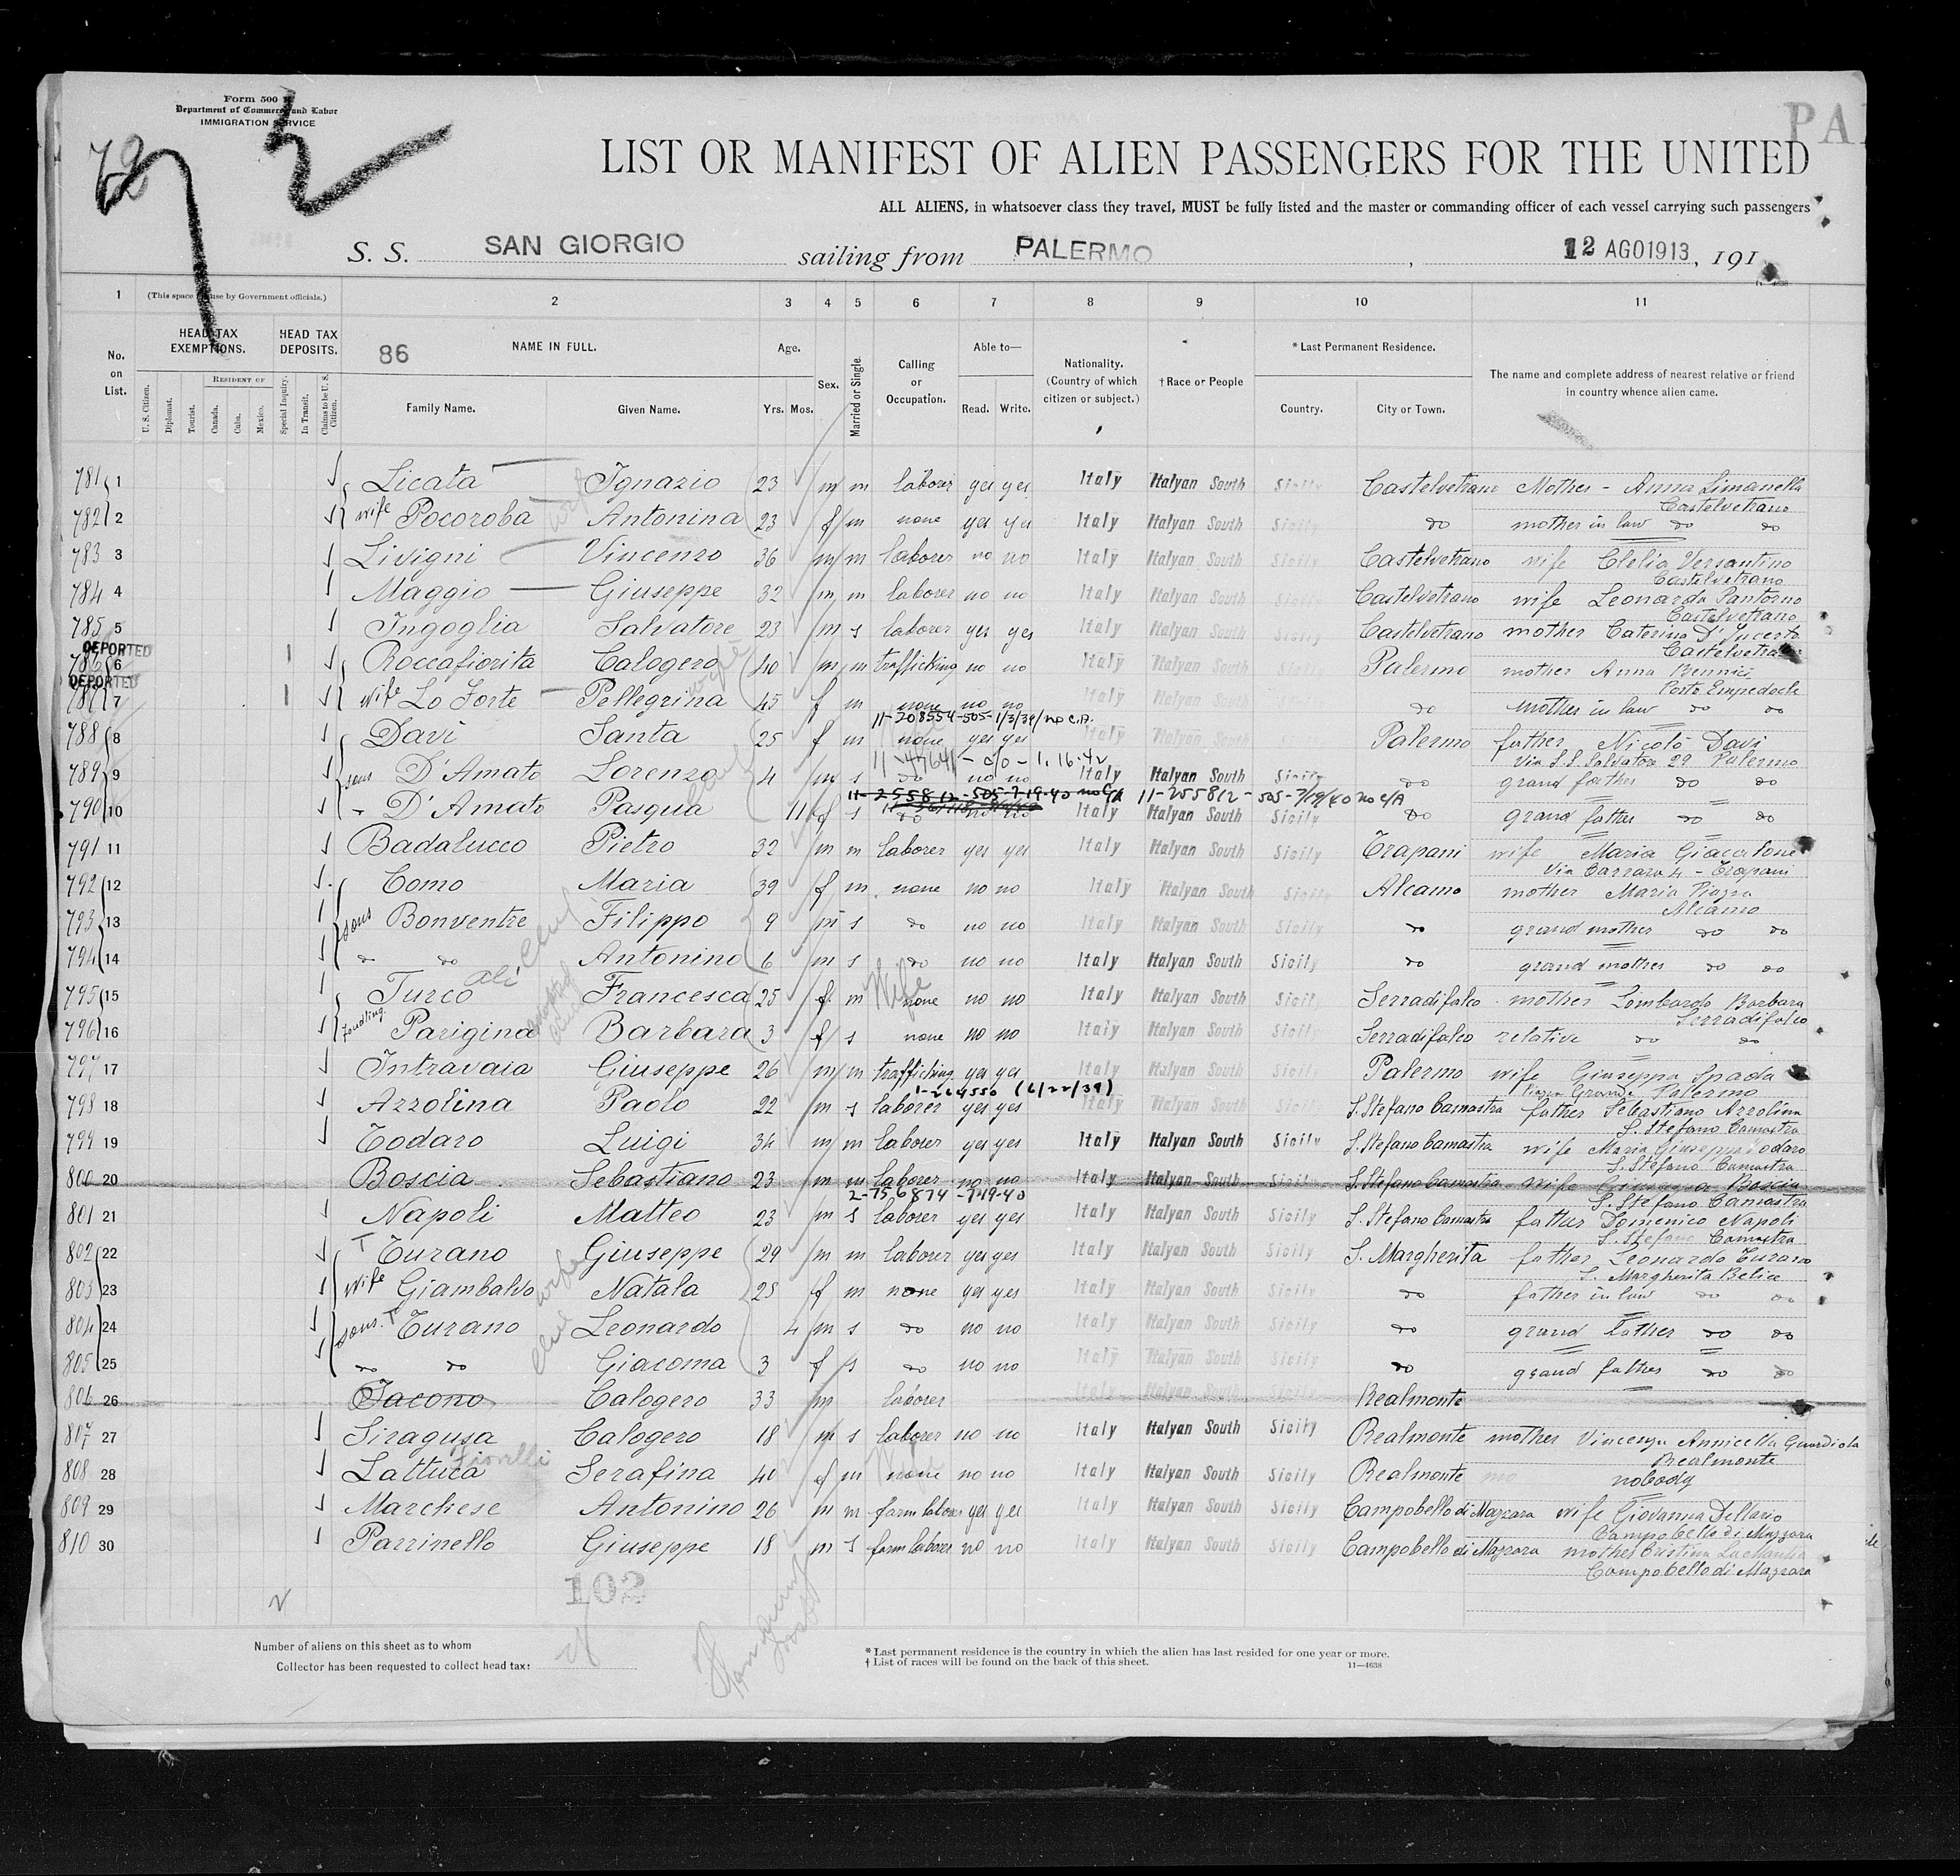 Form 500
Department of Commerce and Labor
IMMIGRATION SERVICE
72
PA
LIST OR MANIFEST OF ALIEN PASSENGERS FOR THE UNITED
ALL ALIENS, in whatsoever class they travel, MUST be fully listed and the master or commanding officer of each vessel carrying such passengers
S. S. SAN GIORGIO sailing from PALERMO , 12 AGO1913, 191
1 (This space use by Government officials.) 2 3 4 5 6 7 8 9 10 11
No. on List. HEAD TAX EXEMPTIONS. HEAD TAX DEPOSITS. 86 NAME IN FULL. Age. Sex. Married or Single. Calling or Occupation. Able to— Nationality. (Country of which citizen or subject.) †Race or People *Last Permanent Residence. The name and complete address of nearest relative or friend in country whence alien came.
U. S. Citizen. Diplomat. Tourist. RESIDENT OF Canada. Cuba. Mexico. Special Inquiry. In Transit. Claims to be U. S. Citizen. Family Name. Given Name. Yrs. Mos. Read. Write. Country. City or Town.
781 1 Licata Ignazio 23 m m laborer yes yes Italy Italyan South Sicily Castelvetrano Mother - Anna Limanella
Castelvetrano
782 2 wife Pocoroba Antonina 23 f m none yes yes Italy Italyan South Sicily do mother in law do do
783 3 Livigni Vincenzo 36 m m laborer no no Italy Italyan South Sicily Castelvetrano wife Clelia Versantino
Castelvetrano
784 4 Maggio Giuseppe 32 m m laborer no no Italy Italyan South Sicily Castelvetrano wife Leonarda Pantorno
Castelvetrano
785 5 Ingoglia Salvatore 23 m s laborer yes yes Italy Italyan South Sicily Castelvetrano mother Caterina D'
Castelvetrano
DEPORTED
786 6 Roccafiorita Calogero 40 m m trafficking no no Italy Italyan South Sicily Palermo mother Anna Bennici
Porto Empedocle
DEPORTED
787 7 wife Lo Forte Pellegrina 45 f m none no no Italy Italyan South Sicily do mother in law do do
11-208554-505-1/3/39/no C.A.
788 8 Davi Santa 25 f m none yes yes Italy Italyan South Sicily Palermo father Nicolò Davi
Via S.S. Salvatore 29 Palermo
11-47641-c/o-1.16.42
789 9 sons D'Amato Lorenzo 4 m s do no no Italy Italyan South Sicily do grand father do do
11-255812-505-7-19-40 no C/A 11-255812-505-7/19/40 no C/A
790 10 " D'Amato Pasqua 11 f s do no no Italy Italyan South Sicily do grand father do do
791 11 Badalucco Pietro 32 m m laborer yes yes Italy Italyan South Sicily Trapani wife Maria Giacalone
Via Carrara 4 - Trapani
792 12 Como Maria 39 f m none no no Italy Italyan South Sicily Alcamo mother Maria Piazza
Alcamo
793 13 sons Bonventre Filippo 9 m s do no no Italy Italyan South Sicily do grand mother do do
794 14 do do Antonino 6 m s do no no Italy Italyan South Sicily do grand mother do do
795 15 Turco Francesca 25 f m none no no Italy Italyan South Sicily Serradifalco mother Lombardo Barbara
Wife
Serradifalco
796 16 foundling Parigina Barbara 3 f s none no no Italy Italyan South Sicily Serradifalco relative do do
797 17 Intravaia Giuseppe 26 m m trafficking yes yes Italy Italyan South Sicily Palermo wife Giuseppa Spada
Grande Palermo
1-264550 (6/22/39)
798 18 Azzolina Paolo 22 m s laborer yes yes Italy Italyan South Sicily S. Stefano Camastra father Sebastiano Azzolina
S. Stefano Camastra
799 19 Todaro Luigi 34 m m laborer yes yes Italy Italyan South Sicily S. Stefano Camastra wife Maria Giuseppa Todaro
S. Stefano Camastra
800 20 Boscia Sebastiano 23 m m laborer no no Italy Italyan South Sicily S. Stefano Camastra wife Boscia
S. Stefano Camastra
2-756874-7-19-40
801 21 Napoli Matteo 23 m s laborer yes yes Italy Italyan South Sicily S. Stefano Camastra father Domenico Napoli
S. Stefano Camastra
802 22 Turano Giuseppe 29 m m laborer yes yes Italy Italyan South Sicily S. Margherita father Leonardo Turano
S. Margherita Belice
803 23 wife Giambalvo Natala 25 f m none yes yes Italy Italyan South Sicily do father in law do do
804 24 sons Turano Leonardo 4 m s do no no Italy Italyan South Sicily do grand father do do
805 25 do do Giacoma 3 f s do no no Italy Italyan South Sicily do grand father do do
806 26 Iacono Calogero 33 m laborer Italy Italyan South Sicily Realmonte
807 27 Siragusa Calogero 18 m s laborer no no Italy Italyan South Sicily Realmonte mother Vincenza Annicella Guardiola
Realmonte
808 28 Lattuca Serafina 40 f m none no no Italy Italyan South Sicily Realmonte nobody
809 29 Marchese Antonino 26 m m farm laborer yes yes Italy Italyan South Sicily Campobello di Mazzara wife Giovanna Dellario
Campobello di Mazzara
810 30 Parrinello Giuseppe 18 m s farm laborer no no Italy Italyan South Sicily Campobello di Mazzara mother Cristina La Mantia
Campobello di Mazzara
102
Number of aliens on this sheet as to whom
Collector has been requested to collect head tax:
*Last permanent residence is the country in which the alien has last resided for one year or more.
†List of races will be found on the back of this sheet.
11—4638